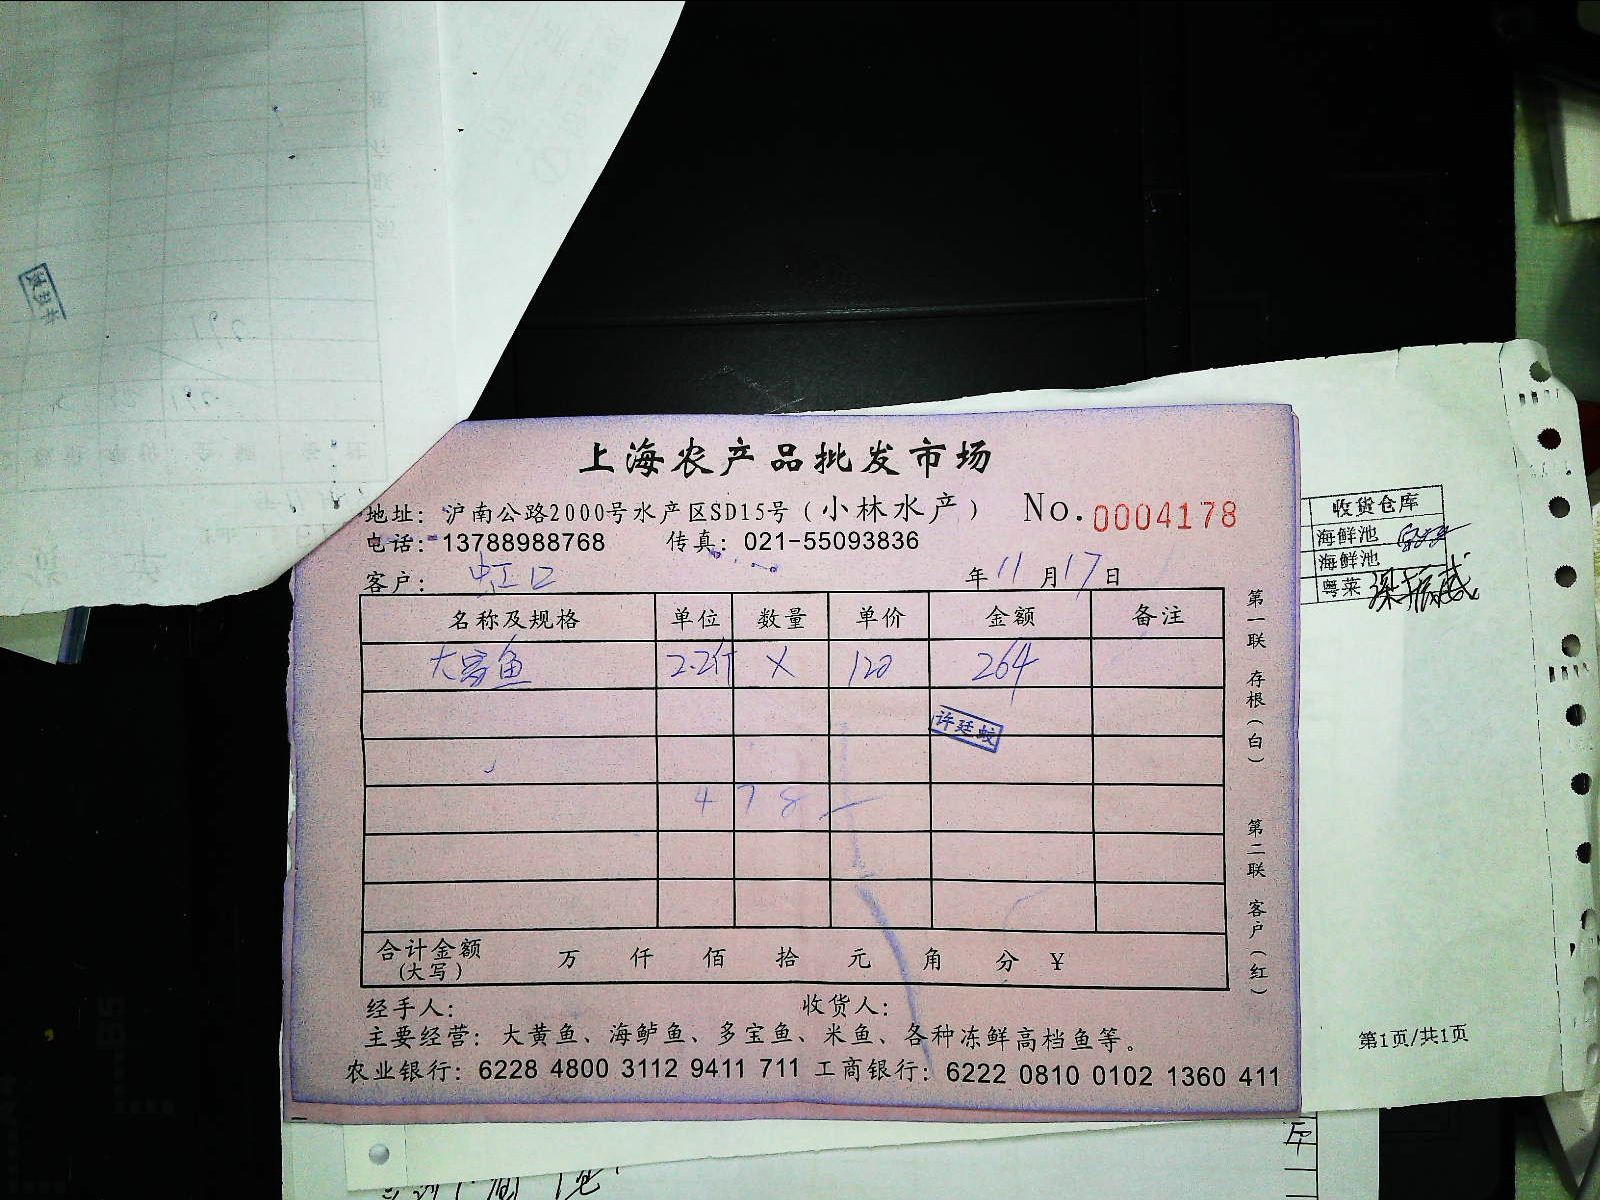 上海农产品批发市场
地址：沪南公路2000号水产区SD15号（小林水产） No.0004178
电话：13788988768 传真：021-55093836
客户：虹口 年11月17日
名称及规格 单位 数量 单价 金额 备注
大 鱼 2.2斤 X 120 264
许廷蛟
478
合计金额 万 仟 佰 拾 元 角 分 ¥
（大写）
经手人： 收货人：
主要经营：大黄鱼、海鲈鱼、多宝鱼、米鱼、各种冻鲜高档鱼等。
农业银行：6228 4800 3112 9411 711 工商银行：6222 0810 0102 1360 411
第一联 存根（白）
第二联 客户（红）
收货仓库
海鲜池
海鲜池
粤菜
第1页/共1页
斤